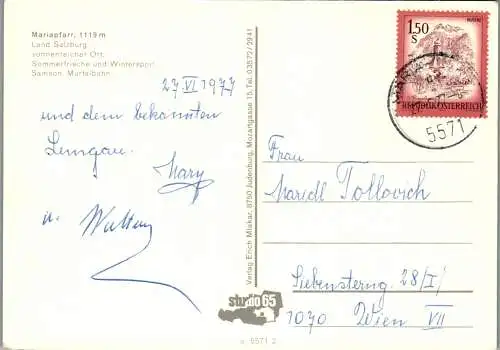 Mariapfarr, 1119 m
Land Salzburg
sonnenreicher Ort,
Sommerfrische und Wintersport
Samson Murtalbahn
27 VI 1977
und dem bekannten
Lungau.
Mary
u. Walter
Verlag Erich Mlakar, 8750 Judenburg, Morangasse 15, Tel. 03572/2941
1.50
S
REPUBLIK ÖSTERREICH
5571
Frau
Maridl Tollovich
Siebensterng. 28/I/
1070 Wien VII
studio 65
5571 2